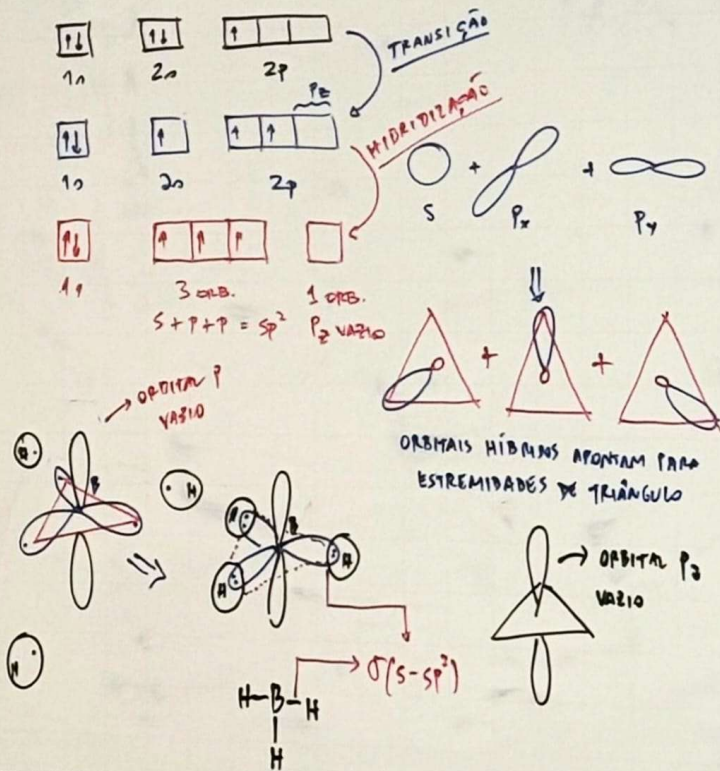 ↑↓ ↑↓ ↑
1s 2s 2p
TRANSIÇÃO
Pz
↑↓ ↑ ↑ ↑
1s 2s 2p
HIBRIDIZAÇÃO
S + Px + Py
↑↓ ↑ ↑ ↑
1s
3 ORB. 1 ORB.
S + P + P = SP² Pz VAZIO
+ +
ORBITAIS HÍBRIDOS APONTAM PARA
ESTREMIDADES DE TRIÂNGULO
ORBITAL P
VAZIO
H B
H
H B
H H
H
ORBITAL Pz
VAZIO
σ(S-SP²)
H-B-H
H